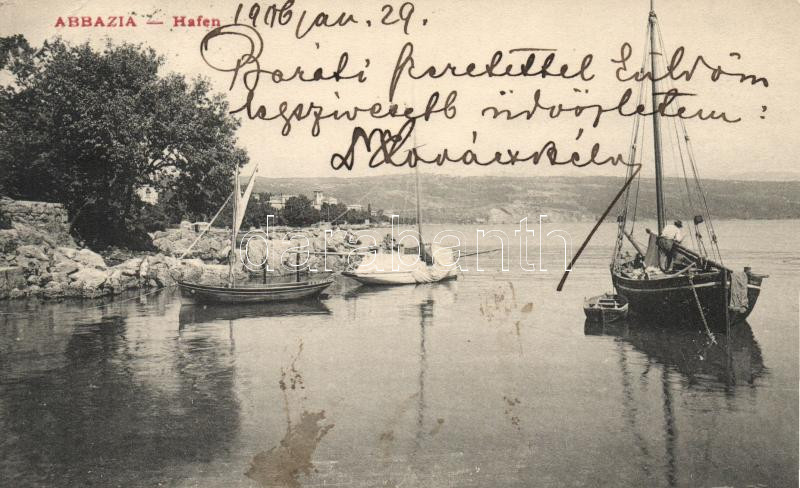 ABBAZIA — Hafen
1906 jan. 29.
Baráti szeretettel küldöm
legszívesebb üdvözletem:
Dr Kovács Béla
databanth